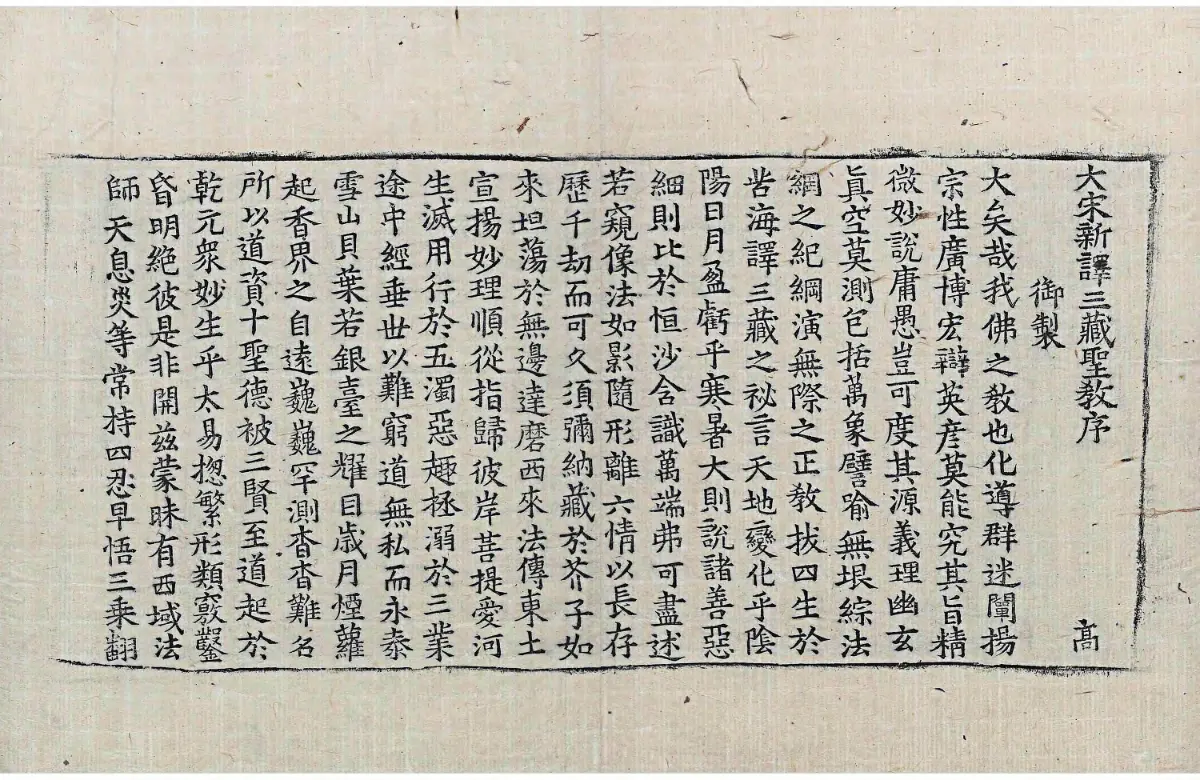 大宋新譯三藏聖教序　高
御製
大矣哉我佛之教也化導群迷闡揚
宗性廣博宏辯英彥莫能究其旨精
微妙說庸愚豈可度其源義理幽玄
眞空莫測包括萬象譬喻無垠綜法
網之紀綱演無際之正教拔四生於
苦海譯三藏之祕言天地變化乎陰
陽日月盈虧乎寒暑大則說諸善惡
細則比於恒沙含識萬端弗可盡述
若窺像法如影隨形離六情以長存
歷千劫而可久須彌納藏於芥子如
來坦蕩於無邊達磨西來法傳東土
宣揚妙理順從指歸彼岸菩提愛河
生滅用行於五濁惡趣拯溺於三業
途中經垂世以難窮道無私而永泰
雪山貝葉若銀臺之耀目歲月煙蘿
起香界之自遠巍巍罕測杳杳難名
所以道資十聖德被三賢至道起於
乾元衆妙生乎太易揔繁形類竅鑿
昏明絕彼是非開茲蒙昧有西域法
師天息災等常持四忍早悟三乘翻